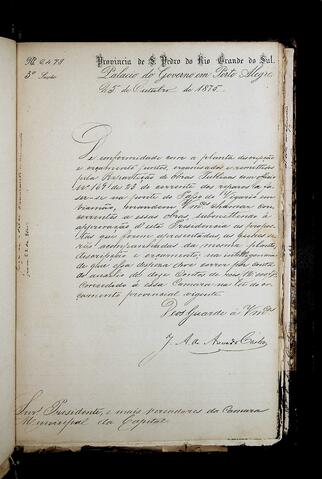 Provincia de S. Pedro do Rio Grande do Sul.
Palacio do Governo em Porto Alegre
25 de Outubro de 1875.
De conformidade com a planta, descripção
e orçamento juntos, organisados e remettidos
pela Repartição de Obras Publicas com officio
de 23 do corrente dos reparos a fa-
zer-se na ponte do Passo do Vigario em
Viamão, mandem Vmces chamar con-
currentes a essas obras, submettendo á
approvação d'esta Presidencia as propos-
tas que forem apresentadas, as quaes de-
rão acompanhadas da mesma planta,
descripção e orçamento; na intelligencia
de que essa despeza deve correr por conta
do auxilio de doze contos de reis
concedido á essa Camara na lei do or-
çamento provincial vigente.
Deos Guarde á Vmces
J. A. de Azevedo Castro
Snrs. Presidente, e mais vereadores da Camara
Municipal da Capital